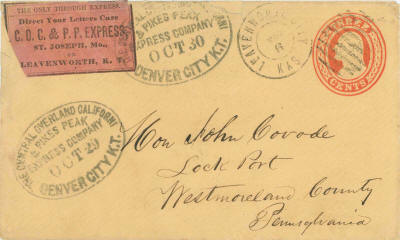 THE ONLY THROUGH EXPRESS.
Direct Your Letters Care
C. O. C. & P. P. EXPRESS
ST. JOSEPH, Mo.,
OR
LEAVENWORTH, K. T.
& PIKES PEAK
EXPRESS COMPANY
OCT 30
DENVER CITY K.T.
LEAVENWORTH CITY
6
KAS
THREE
CENTS
THE CENTRAL OVERLAND CALIFORNI
& PIKES PEAK
EXPRESS COMPANY
OCT 29
DENVER CITY K.T.
Hon John Covode
Lock Port
Westmoreland County
Pennsylvania